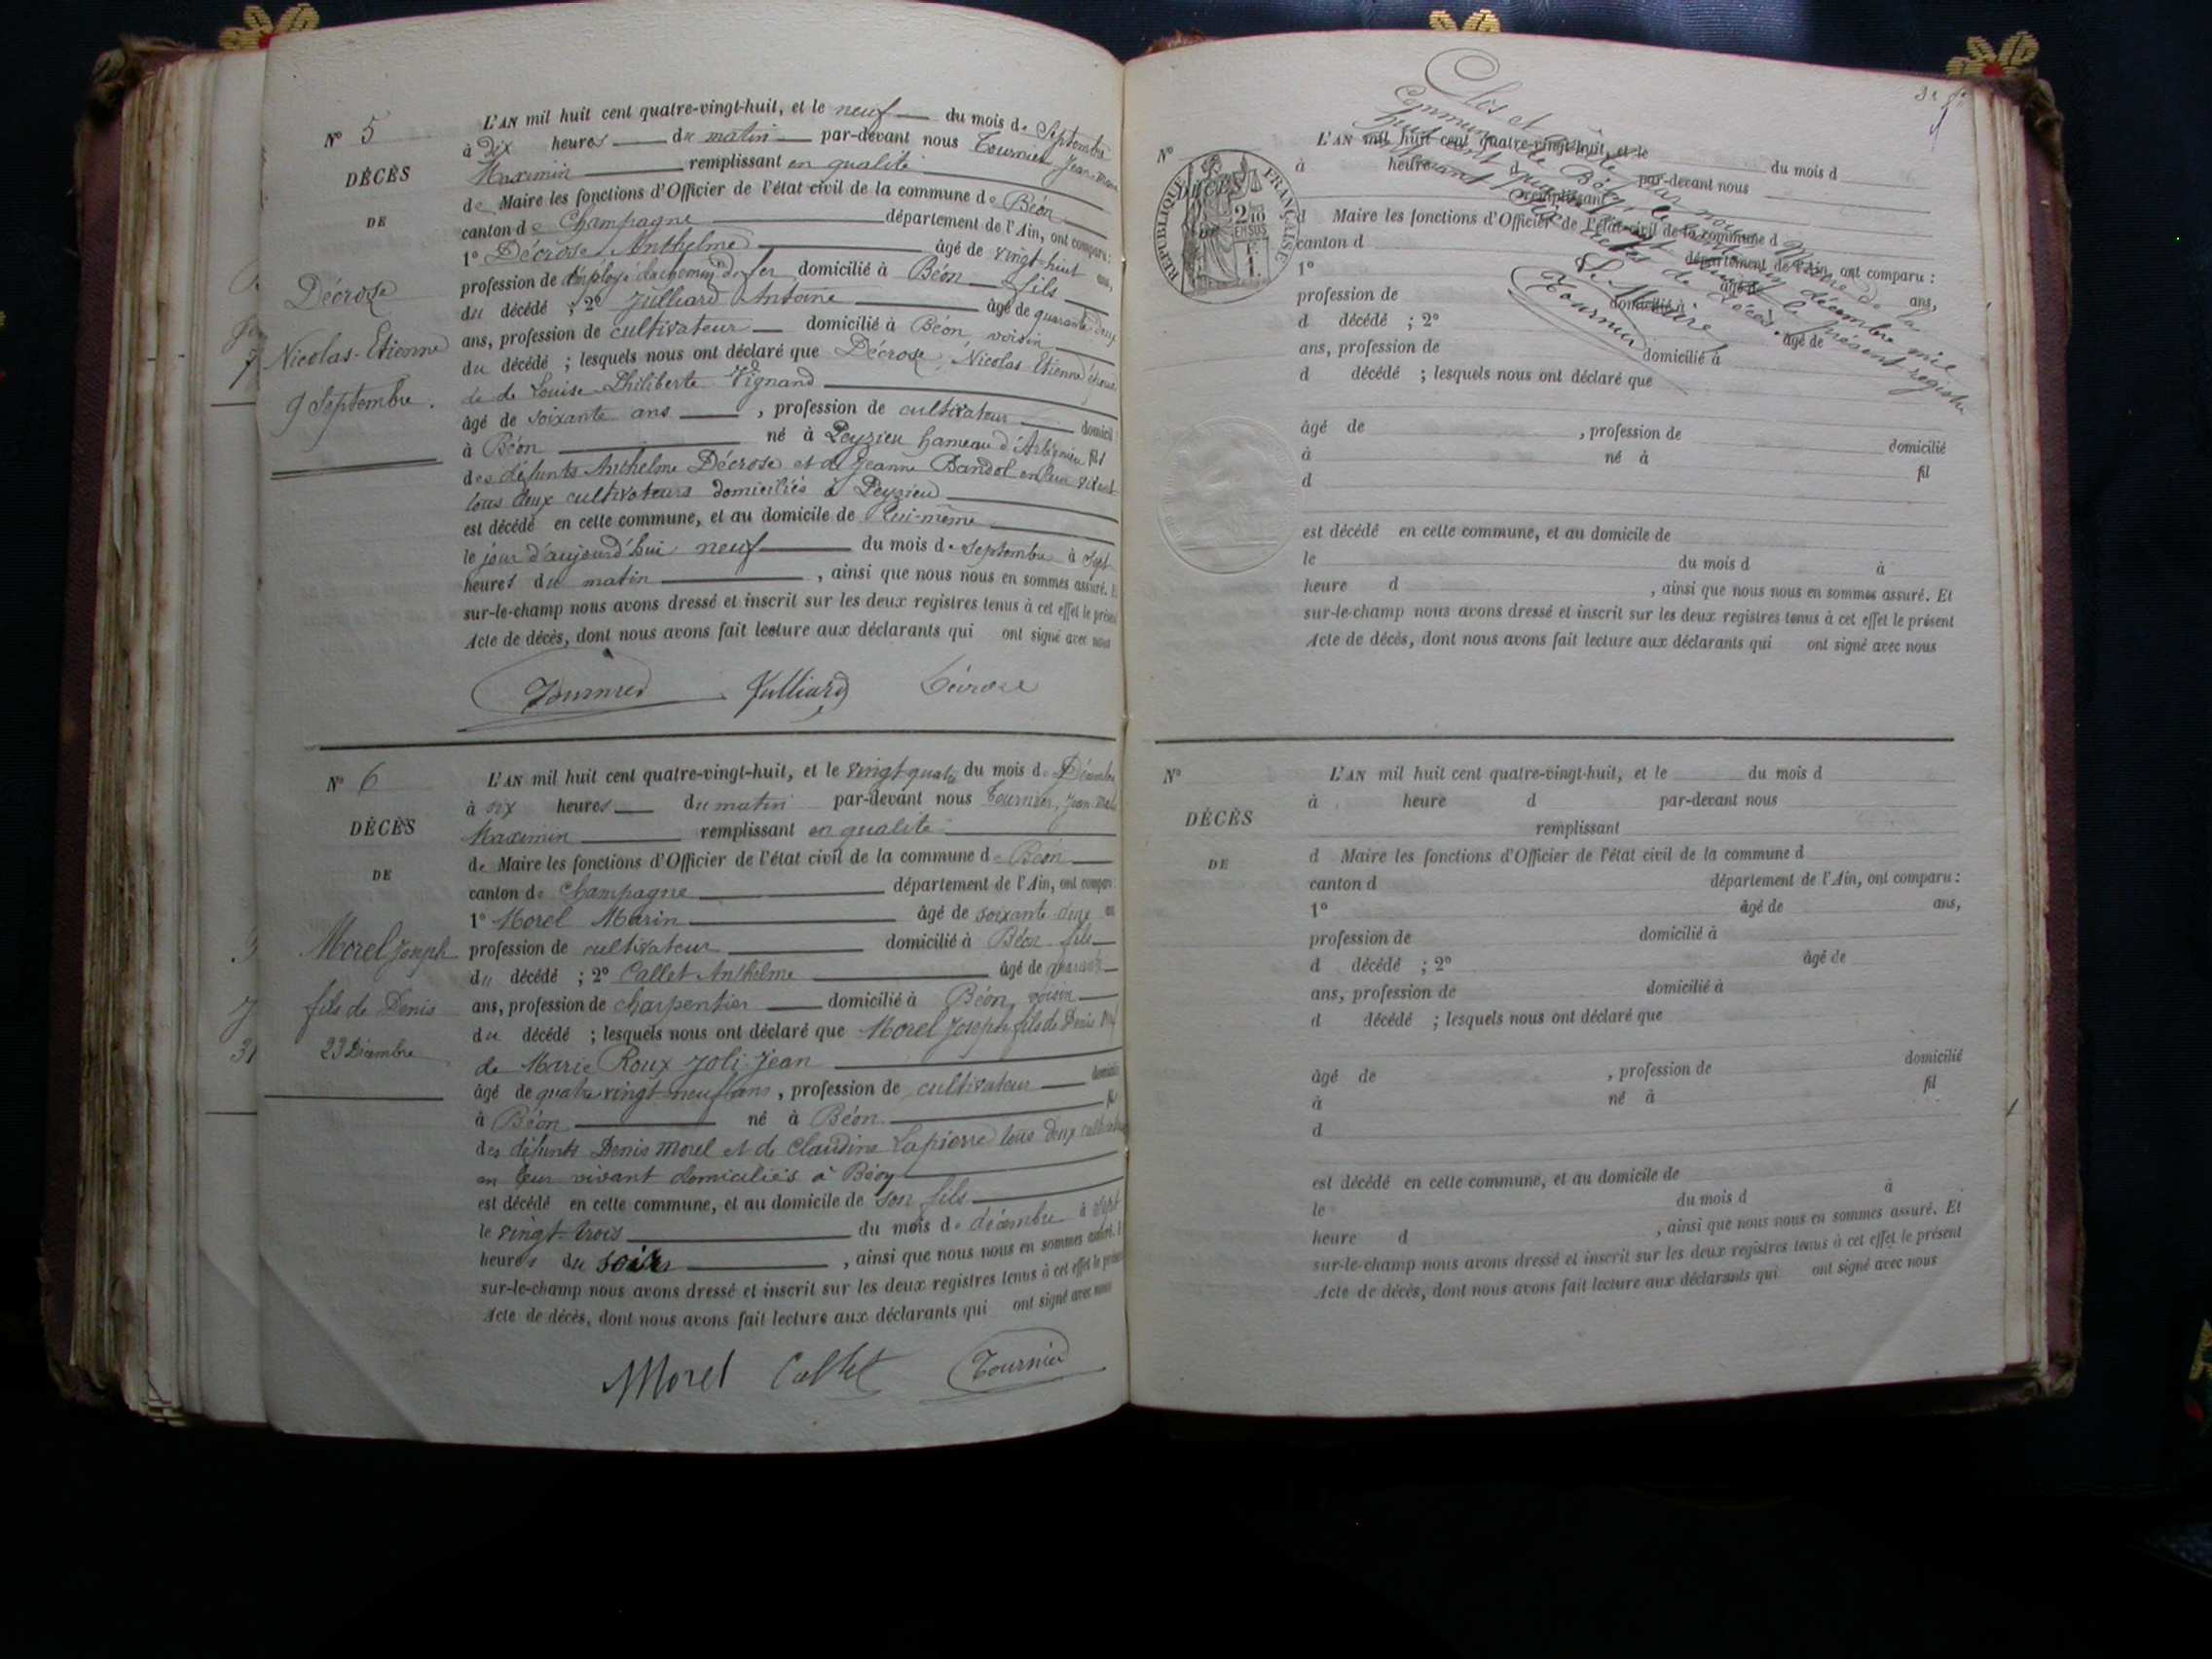 N° 5
DÉCÈS
DE
Décrose
Nicolas-Etienne
9 Septembre.
L'AN mil huit cent quatre-vingt-huit, et le neuf du mois de Septembre
à dix heures du matin par-devant nous Tournier Jean-Marie
Maximin remplissant en qualité
de Maire les fonctions d'Officier de l'état civil de la commune de Béon
canton de Champagne département de l'Ain, ont comparu :
1° Décrose Anthelme âgé de vingt-huit ans,
profession de employé du chemin de fer domicilié à Béon fils
du décédé ; 2° Julliard Antoine âgé de quarante deux
ans, profession de cultivateur domicilié à Béon voisin
du décédé ; lesquels nous ont déclaré que Décrose, Nicolas Etienne
de Louise Philiberte Vignand
âgé de soixante ans , profession de cultivateur domicil
à Béon né à Peyzieu hameau d'Arbignieu fil
des défunts Anthelme Décrose et de Jeanne Bandol en leur vivant
tous deux cultivateurs domiciliés à Peyzieu
est décédé en cette commune, et au domicile de lui-même
le jour d'aujourd'hui neuf du mois de septembre à sept
heures du matin , ainsi que nous nous en sommes assuré. E
sur-le-champ nous avons dressé et inscrit sur les deux registres tenus à cet effet le présent
Acte de décès, dont nous avons fait lecture aux déclarants qui ont signé avec nous
Tournier Julliard Décrose
N° 6
DÉCÈS
DE
Morel Joseph
fils de Denis
23 Décembre
L'AN mil huit cent quatre-vingt-huit, et le vingt-quatre du mois de Décembre
à six heures du matin par-devant nous Tournier, Jean Marie
Maximin remplissant en qualité
de Maire les fonctions d'Officier de l'état civil de la commune de Béon
canton de Champagne département de l'Ain, ont compar
1° Morel Marin âgé de soixante deux an
profession de cultivateur domicilié à Béon fils
du décédé ; 2° Callet Anthelme âgé de quarante
ans, profession de charpentier domicilié à Béon, voisin
du décédé ; lesquels nous ont déclaré que Morel Joseph fils de Denis
de Marie Roux Joli-Jean
âgé de quatre vingt-neuf ans, profession de cultivateur domicilié
à Béon né à Béon fil
des défunts Denis Morel et de Claudine Lapierre tous deux cultivateurs
en leur vivant domiciliés à Béon
est décédé en cette commune, et au domicile de son fils
le vingt-trois du mois de décembre à sept
heures du soir , ainsi que nous nous en sommes assuré. E
sur-le-champ nous avons dressé et inscrit sur les deux registres tenus à cet effet le présent
Acte de décès, dont nous avons fait lecture aux déclarants qui ont signé avec nous
Morel Callet Tournier
Clos et par nous Maire de la
Commune de Béon, le trente un décembre mil
huit cent quatre vingt huit le présent registre
actes de décès.
Le Maire
Tournier
RÉPUBLIQUE FRANÇAISE
N°
DÉCÈS
DE
L'AN mil huit cent quatre-vingt-huit, et le du mois d
à heure d par-devant nous
remplissant
d Maire les fonctions d'Officier de l'état civil de la commune d
canton d département de l'Ain, ont comparu :
1° âgé de ans,
profession de domicilié à
d décédé ; 2° âgé de
ans, profession de domicilié à
d décédé ; lesquels nous ont déclaré que
âgé de , profession de domicilié
à né à fil
d
est décédé en cette commune, et au domicile de
le du mois d à
heure d , ainsi que nous nous en sommes assuré. Et
sur-le-champ nous avons dressé et inscrit sur les deux registres tenus à cet effet le présent
Acte de décès, dont nous avons fait lecture aux déclarants qui ont signé avec nous
N°
DÉCÈS
DE
L'AN mil huit cent quatre-vingt-huit, et le du mois d
à heure d par-devant nous
remplissant
d Maire les fonctions d'Officier de l'état civil de la commune d
canton d département de l'Ain, ont comparu :
1° âgé de ans,
profession de domicilié à
d décédé ; 2° âgé de
ans, profession de domicilié à
d décédé ; lesquels nous ont déclaré que
âgé de , profession de domicilié
à né à fil
d
est décédé en cette commune, et au domicile de
le du mois d à
heure d , ainsi que nous nous en sommes assuré. Et
sur-le-champ nous avons dressé et inscrit sur les deux registres tenus à cet effet le présent
Acte de décès, dont nous avons fait lecture aux déclarants qui ont signé avec nous